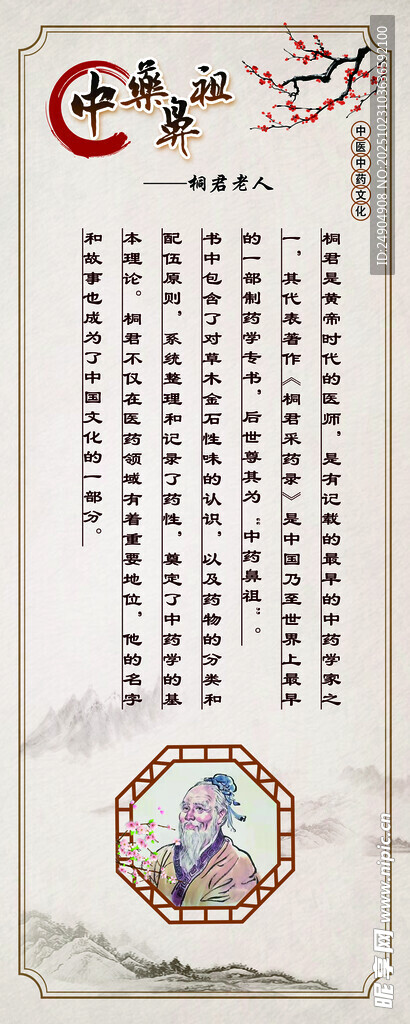 中藥鼻祖
——桐君老人
中医中药文化
桐君是黄帝时代的医师，是有记载的最早的中药学家之
一，其代表著作《桐君采药录》是中国乃至世界上最早
的一部制药学专书，后世尊其为“中药鼻祖”。
书中包含了对草木金石性味的认识，以及药物的分类和
配伍原则，系统整理和记录了药性，奠定了中药学的基
本理论。桐君不仅在医药领域有着重要地位，他的名字
和故事也成为了中国文化的一部分。
ID:24904908 NO:20251023103636592100
昵享网 www.nipic.cn